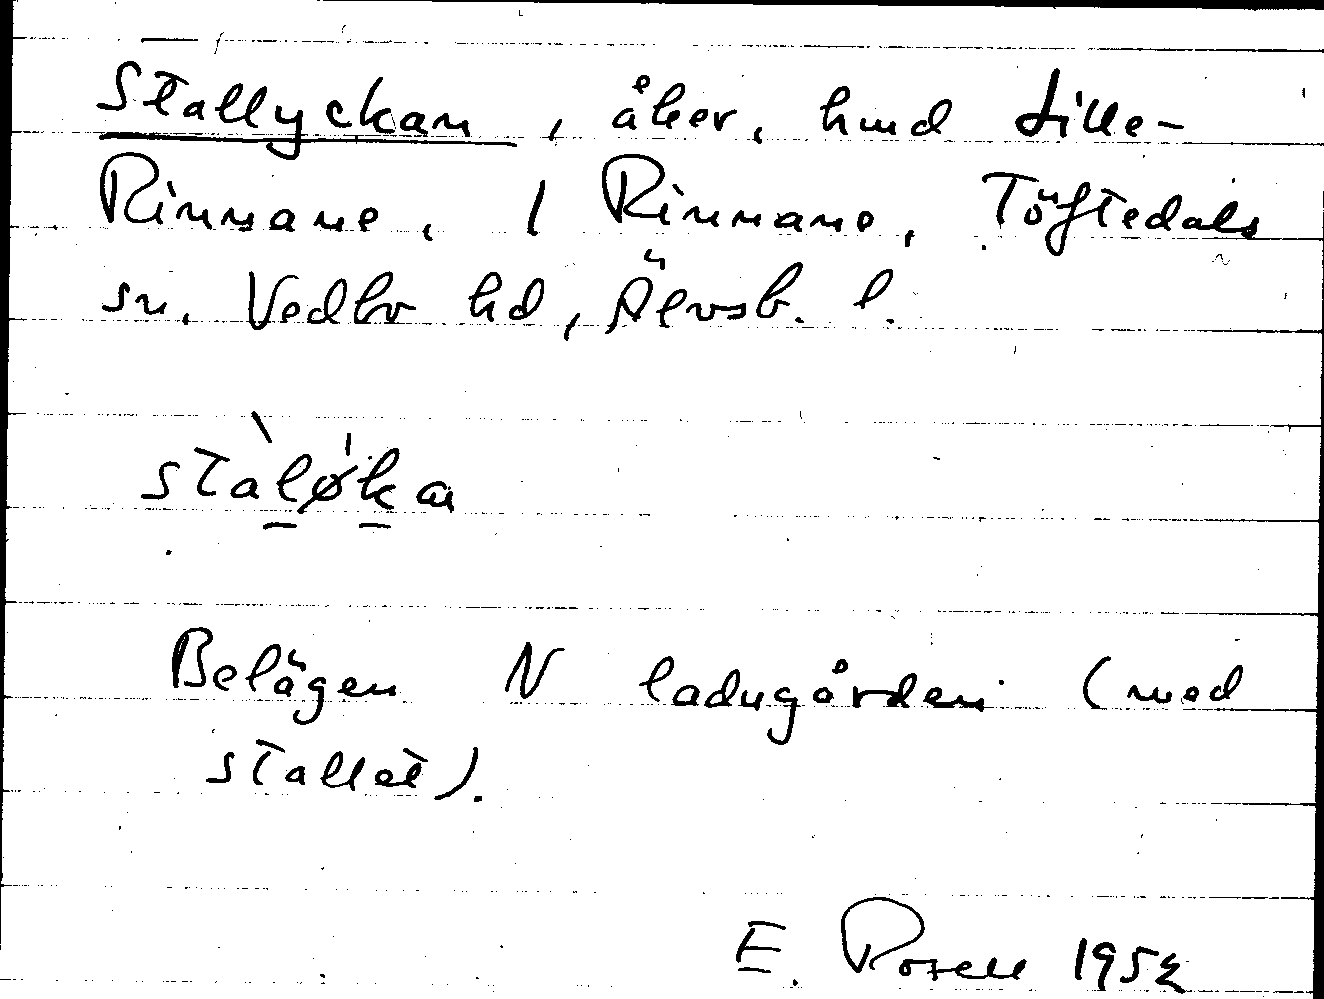 Stallyckan, åker, hmd Lille-
Rinnane, 1 Rinnane, Töftedals
sn. Vedbo hd, Älvsb. l.
stàløka
Belägen N ladugården (med
stallet).
E. Rosell 1952